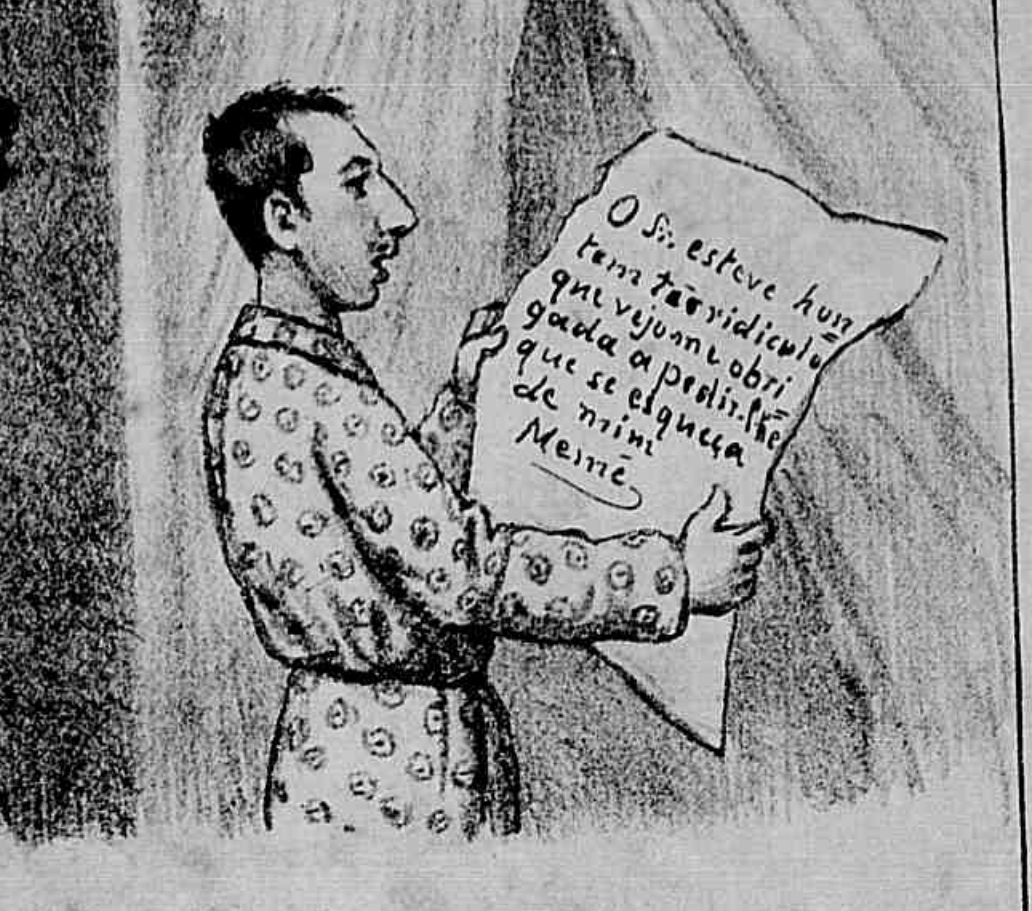 O Sr. esteve hon=
tem tão ridiculo
que vejo-me obri=
gada a pedir-lhe
que se esqueça
de mim
Memé